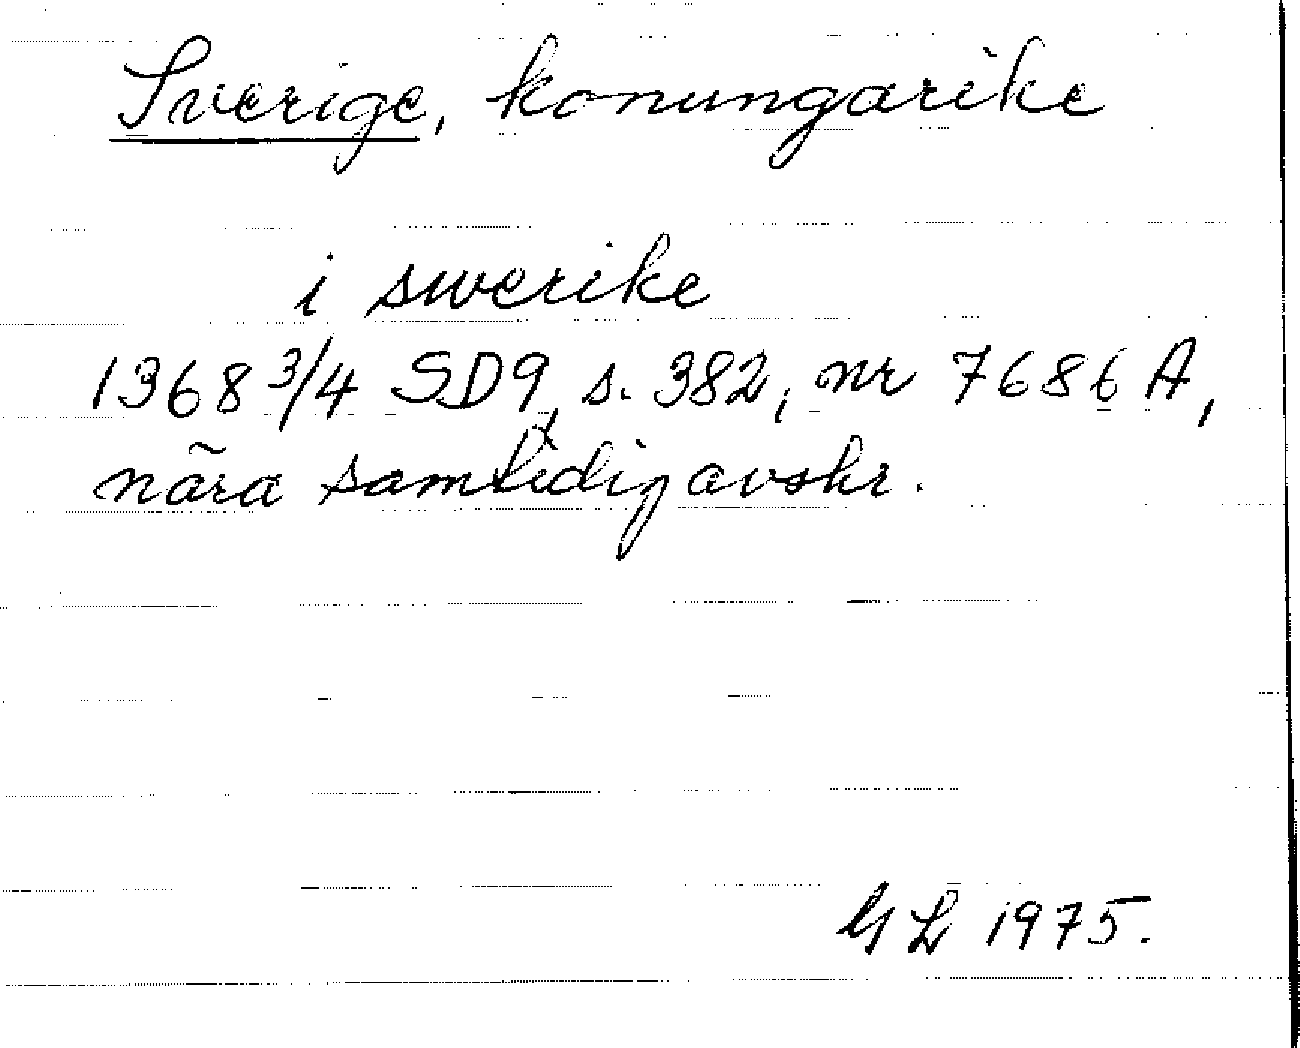 Sverige, konungarike
i swerike
1368 3/4 SD9, s. 382, nr 7686 A,
nära samtidig avskr.
GL 1975.